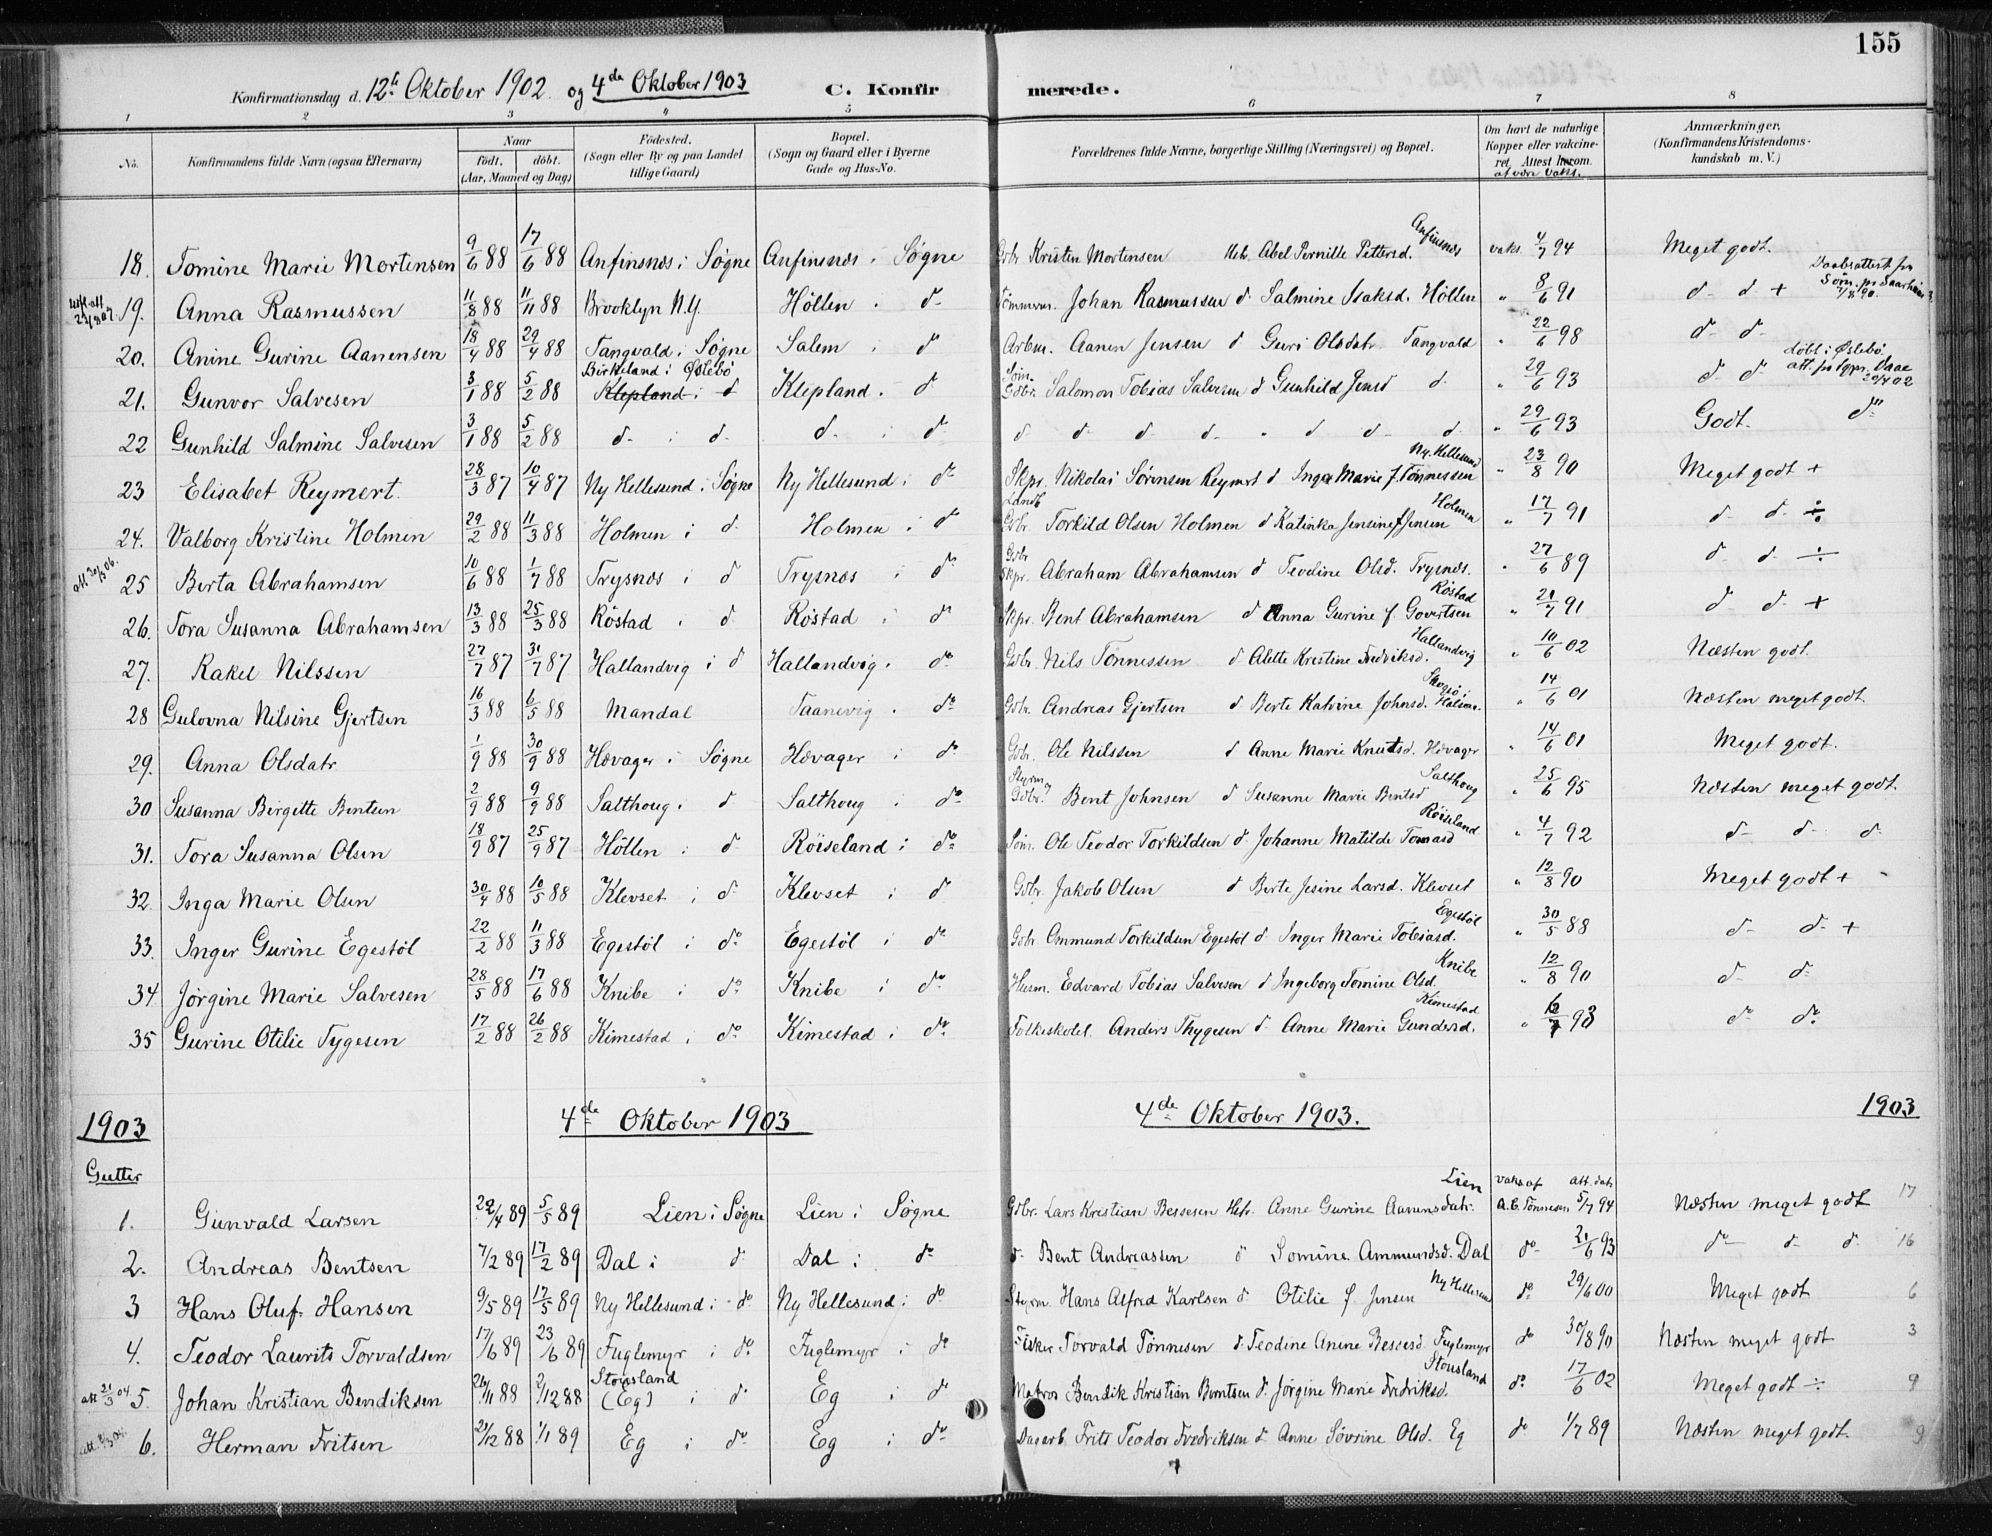 155
Konfirmationsdag d. 12te Oktober 1902 og 4de Oktober 1903 C. Konfirmerede.
1 2 3 4 5 6 7 8
No. Konfirmandens fulde Navn (ogsaa Efternavn) Naar født, døbt. (Aar, Maaned og Dag) Fødested. (Sogn eller By og paa Landet tillige Gaard) Bopæl. (Sogn og Gaard eller i Byerne Gade og Hus-No. Forældrenes fulde Navne, borgerlige Stilling (Næringsvei) og Bopæl. Om havt de naturlige Kopper eller vaccineret. Attest herom. Anmærkninger. (Konfirmandens Kristendomskundskab m. V.)
18. Tomine Marie Mortensen 9/6 88 17/6 88 Anfinsnæs i Søgne Anfinsnæs i Søgne Gbr. Kristen Mortensen Hst. Abel Pernille Pettersd. Anfinsnæs vaks. 4/7 94 Meget godt.
19. Anna Rasmussen 11/8 88 11/11 88 Brooklyn N.Y. Höllen i do Tömmerm. Johan Rasmussen d Salmine Isaksd. Höllen " 8/6 91 d d +
20. Anine Gurine Aanensen 18/4 88 29/4 88 Tangvald i Søgne Salem i d Arbm. Aanen Jensen d Guri Olsdatr Tangvald " 22/6 98 d d
21. Gunvor Salvesen 3/1 88 5/2 88 Birkeland i Øslebö Klepland i d Klepland i d Søm. Gdbr. Salomon Tobias Salvesen d Gunhild Jensd d. " 29/6 93 d d døbt i Øslebö.
22 Gunhild Salmine Salvesen 3/1 88 5/2 88 d i d d i d d d d d " d d d " 29/6 93 Godt. do
23 Elisabet Reymert. 28/3 87 10/4 87 Ny Hellesund i Søgne Ny Hellesund i do Skpr. Nikolai Sørensen Reymert d Inga Marie f. Tönnessen Ny. Hellesund " 23/8 90 Meget godt +
24. Valborg Kristine Holmen 29/2 88 11/3 88 Holmen i d Holmen i d Gbr. Torkild Olsen Holmen d Katinka Jensine f Jensen Holmen " 17/7 91 d d ÷
25 Berta Abrahamsen 10/6 88 1/7 88 Trysnæs i d Trysnæs i do Gbr Skpr. Abraham Abrahamsen d Teodine Olsd. Trysnæs. " 27/6 89 d d ÷
26. Tora Susanna Abrahamsen 13/3 88 25/3 88 Röstad i d Röstad i d Skpr. Bent Abrahamsen d Anna Gurine f. Govertsen Röstad " 21/7 91 d d +
27. Rakel Nilssen 27/7 87 31/7 87 Hallandvig i d Hallandvig i do Gdbr. Nils Tönnessen d Alette Kristine Fredriksd. Hallandvig " 10/6 02 Næsten godt.
28 Gulovna Nilsine Gjertsen 16/3 88 6/5 88 Mandal Taanevig i do Gdbr. Andreas Gjertsen d Berte Katrine Johnsd. " 14/6 01 Næsten meget godt.
29. Anna Olsdatr 1/9 88 30/9 88 Hævager i Søgne Hævager i do Gdbr. Ole Nilssen d Anne Marie Knutsd. Hævager " 14/6 01 Meget godt.
30 Susanna Birgette Bentsen 2/9 88 9/9 88 Salthoug i d Salthoug i do Styrm Gdbr. Bent Johnsen d Susanne Marie Bentsd Salthoug " 25/6 95 Næsten meget godt.
31. Tora Susanna Olsen 18/9 87 25/9 87 Höllen i d Röiseland i do Søm. Ole Teodor Torkildsen d. Johanne Matilde Tomasd Röiseland " 4/7 92 d d d
32. Inga Marie Olsen 30/4 88 10/5 88 Klevset i d Klevset i d Gdbr. Jakob Olsen d Berte Jesine Larsd. Klevset " 12/8 90 Meget godt +
33. Inger Gurine Egestöl 22/2 88 11/3 88 Egestöl i do Egestöl i do Gdbr Ommund Torkildsen Egestöl d Inger Marie Tobiasd. Egestöl " 30/5 88 d d +
34. Jörgine Marie Salvesen 28/5 88 17/6 88 Knibe i do Knibe i do Husm. Edvard Tobias Salvesen d Ingeborg Tomine Olsd. Knibe " 12/8 90 d do
35 Gurine Otilie Tygesen 17/2 88 26/2 88 Kimestad i do Kimestad i do Folkeskolel. Anders Thygesen d Anne Marie Gundersd. Kimestad " 93 do do
1903 4de Oktober 1903 4de Oktober 1903. 1903
Gutter
1. Gunvald Larsen 22/4 89 5/5 89 Lien i Søgne Lien i Søgne Gdbr. Lars Kristian Bessesen Hstr. Anne Gurine Aanensdatr. Lien vaks af A.C. Tönnesen att. dat. 5/7 94 Næsten meget godt 17
2. Andreas Bentsen 7/2 89 17/2 89 Dal i d Dal i do d. Bent Andreassen d Somine Ammundsd. Dal do 21/6 93 do d d 16
3 Hans Oluf Hansen 9/5 89 17/5 89 Ny Hellesund i do Ny Hellesund i do Styrm. Hans Alfred Karlsen d Otilie f Jensen Ny Hellesund do 29/6 00 Meget godt 6
4. Teodor Laurits Torvaldsen 17/6 89 23/6 89 Fuglemyr i do Fuglemyr i do Fisker Torvald Tönnesen d. Teodine Anine Bessesd. Fuglemyr do 30/8 90 Næsten meget godt 3
att 21/3 04. 5. Johan Kristian Bendiksen 26/11 88 2/12 88 Stousland (Eg) i d Eg i d Matros Bendik Kristian Berntsen d. Jörgine Marie Fredriksd. Stousland do 17/6 02 Meget godt ÷ 9
6. Herman Fritsen 21/12 88 1/1 89 Eg i do Eg i do Dagarb. Frits Teodor Fredriksen d Anne Sövrine Olsd. Eg do 1/7 89 Næsten meget godt. 9